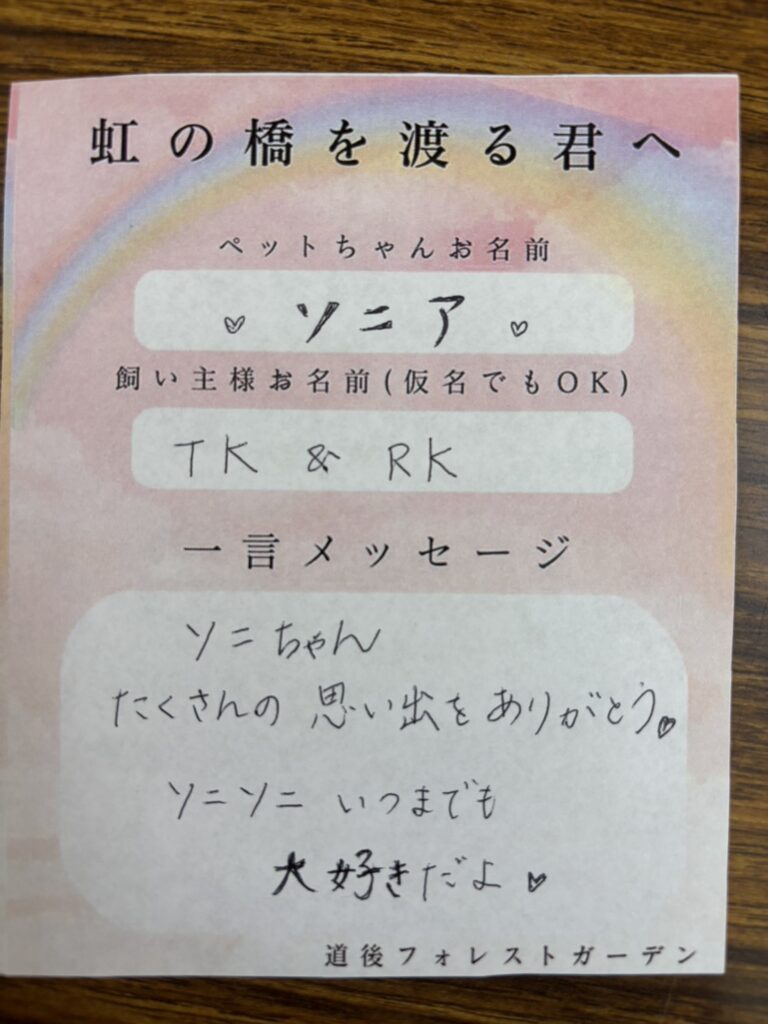 虹の橋を渡る君へ
ペットちゃんお名前
♡ ソニア ♡
飼い主様お名前(仮名でもOK)
TK & RK
一言メッセージ
ソニちゃん
たくさんの思い出をありがとう。♡
ソニソニ いつまでも
大好きだよ♡
道後フォレストガーデン